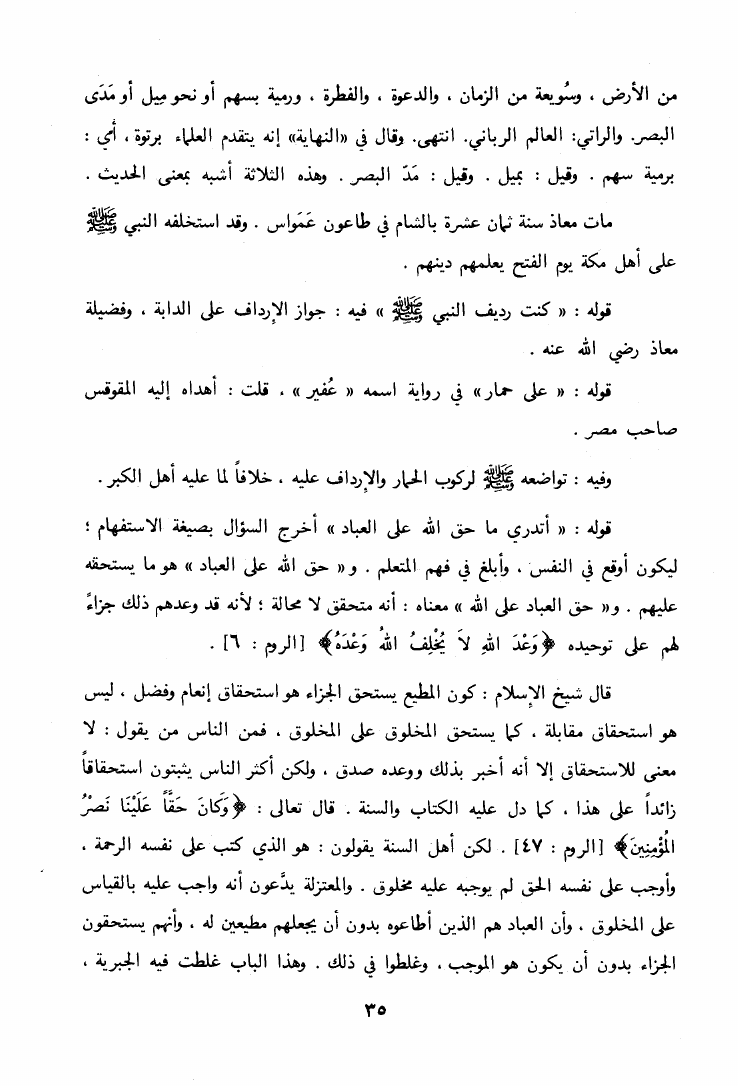 من الأرض ، وسُويعة من الزمان ، والدعوة ، والفطرة ، ورمية بسهم أو نحو مِيل أو مَدَى
البصر. والراتي: العالم الرباني. انتهى. وقال في «النهاية» إنه يتقدم العلماء برتوة ، أي :
برمية سهم . وقيل : بميل . وقيل : مَدّ البصر . وهذه الثلاثة أشبه بمعنى الحديث .
مات معاذ سنة ثمان عشرة بالشام في طاعون عَمَواس . وقد استخلفه النبي ﷺ
على أهل مكة يوم الفتح يعلمهم دينهم .
قوله : « كنت رديف النبي ﷺ » فيه : جواز الإرداف على الدابة ، وفضيلة
معاذ رضي الله عنه .
قوله : « على حمار» في رواية اسمه « عُفير » ، قلت : أهداه إليه المقوقس
صاحب مصر .
وفيه : تواضعه ﷺ لركوب الحمار والإرداف عليه ، خلافاً لما عليه أهل الكبر .
قوله : « أتدري ما حق الله على العباد » أخرج السؤال بصيغة الاستفهام ؛
ليكون أوقع في النفس ، وأبلغ في فهم المتعلم . و« حق الله على العباد » هو ما يستحقه
عليهم . و« حق العباد على الله » معناه : أنه متحقق لا محالة ؛ لأنه قد وعدهم ذلك جزاءً
لهم على توحيده ﴿وَعْدَ اللهِ لاَ يُخْلِفُ اللهُ وَعْدَهُ﴾ [الروم : ٦] .
قال شيخ الإسلام : كون المطيع يستحق الجزاء هو استحقاق إنعام وفضل ، ليس
هو استحقاق مقابلة ، كما يستحق المخلوق على المخلوق ، فمن الناس من يقول : لا
معنى للاستحقاق إلا أنه أخبر بذلك ووعده صدق ، ولكن أكثر الناس يثبتون استحقاقاً
زائداً على هذا ، كما دل عليه الكتاب والسنة . قال تعالى : ﴿وَكَانَ حَقًّا عَلَيْنَا نَصْرُ
المُؤْمِنِينَ﴾ [الروم : ٤٧] . لكن أهل السنة يقولون : هو الذي كتب على نفسه الرحمة ،
وأوجب على نفسه الحق لم يوجبه عليه مخلوق . والمعتزلة يدَّعون أنه واجب عليه بالقياس
على المخلوق ، وأن العباد هم الذين أطاعوه بدون أن يجعلهم مطيعين له ، وأنهم يستحقون
الجزاء بدون أن يكون هو الموجب ، وغلطوا في ذلك . وهذا الباب غلطت فيه الجبرية ،
٣٥